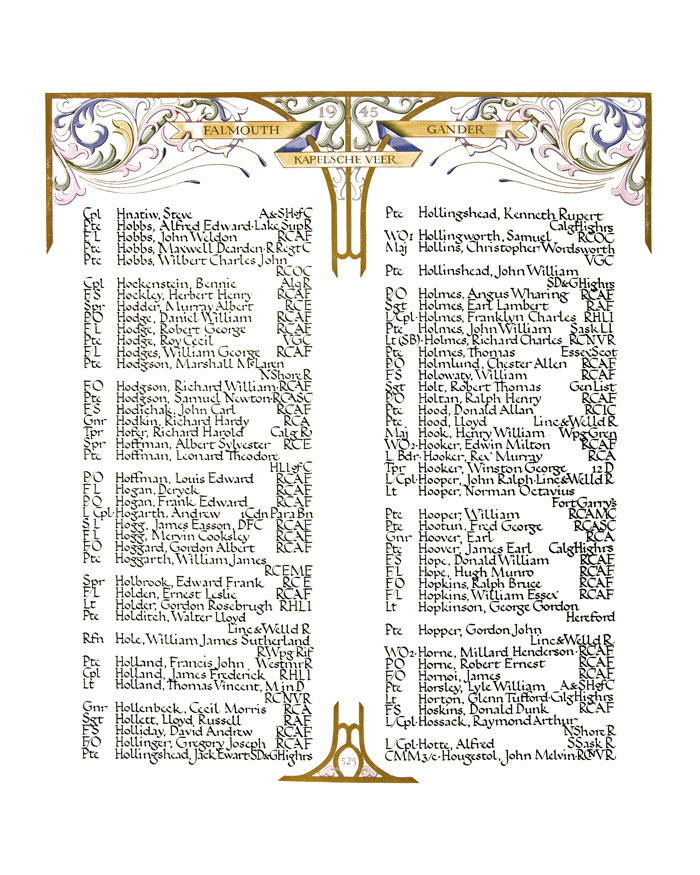 19 45
FALMOUTH
GANDER
KAPELSCHE VEER
Cpl Hnatiw, Steve A&SHofC
Pte Hobbs, Alfred Edward·Lake Sup R
F/L Hobbs, John Weldon RCAF
Pte Hobbs, Maxwell Dearden·R Regt C
Pte Hobbs, Wilbert Charles John
RCOC
Cpl Hockenstein, Bennie Alg R
F/S Hockley, Herbert Henry RCAF
Spr Hodder, Murray Albert RCE
P/O Hodge, Daniel William RCAF
F/L Hodge, Robert George RCAF
Pte Hodge, Roy Cecil VGC
F/L Hodges, William George RCAF
Pte Hodgson, Marshall McLaren
N Shore R
F/O Hodgson, Richard William·RCAF
Pte Hodgson, Samuel Newton·RCASC
F/S Hodichak, John Carl RCAF
Gnr Hodkin, Richard Hardy RCA
Tpr Hofer, Richard Harold Calg R
Spr Hoffman, Albert Sylvester RCE
Pte Hoffman, Leonard Theodore
HLIofC
P/O Hoffman, Louis Edward RCAF
F/L Hogan, Deryck RCAF
P/O Hogan, Frank Edward RCAF
L/Cpl·Hogarth, Andrew 1 Cdn Para Bn
S/L Hogg, James Easson, DFC RCAF
F/L Hogg, Mervin Cooksley RCAF
F/O Hoggard, Gordon Albert RCAF
Pte Hoggarth, William James
RCEME
Spr Holbrook, Edward Frank RCE
F/L Holden, Ernest Leslie RCAF
Lt Holder, Gordon Rosebrugh RHLI
Pte Holditch, Walter Lloyd
Linc&Welld R
Rfn Hole, William James Sutherland
R Wpg Rif
Pte Holland, Francis John Westmr R
Cpl Holland, James Frederick RHLI
Lt Holland, Thomas Vincent, M in D
RCNVR
Gnr Hollenbeck, Cecil Morris RCA
Sgt Hollett, Lloyd Russell RAF
F/S Holliday, David Andrew RCAF
F/O Hollinger, Gregory Joseph RCAF
Pte Hollingshead, Jack Ewart·SD&GHighrs
Pte Hollingshead, Kenneth Rupert
Calg Highrs
WO1 Hollingworth, Samuel RCOC
Maj Hollins, Christopher Wordsworth
VGC
Pte Hollinshead, John William
SD&GHighrs
P/O Holmes, Angus Wharing RCAF
Sgt Holmes, Earl Lambert RAF
L/Cpl·Holmes, Franklyn Charles RHLI
Pte Holmes, John William Sask LI
Lt (SB)·Holmes, Richard Charles RCNVR
Pte Holmes, Thomas Essex Scot
P/O Holmlund, Chester Allen RCAF
F/S Holowaty, William RCAF
Sgt Holt, Robert Thomas Gen List
P/O Holtan, Ralph Henry RCAF
Pte Hood, Donald Allan RCIC
Pte Hood, Lloyd Linc&Welld R
Maj Hook, Henry William Wpg Gren
WO2·Hooker, Edwin Milton RCAF
L/Bdr·Hooker, Rex Murray RCA
Tpr Hooker, Winston George 12 D
L/Cpl·Hooper, John Ralph·Linc&Welld R
Lt Hooper, Norman Octavius
Fort Garrys
Pte Hooper, William RCAMC
Pte Hootun, Fred George RCASC
Gnr Hoover, Earl RCA
Pte Hoover, James Earl Calg Highrs
F/S Hope, Donald William RCAF
F/L Hope, Hugh Munro RCAF
F/O Hopkins, Ralph Bruce RCAF
F/L Hopkins, William Essex RCAF
Lt Hopkinson, George Gordon
Hereford
Pte Hopper, Gordon John
Linc&Welld R
WO2·Horne, Millard Henderson·RCAF
P/O Horne, Robert Ernest RCAF
F/O Hornoi, James RCAF
Pte Horsley, Lyle William A&SHofC
Lt Horton, Glenn Tufford·Calg Highrs
F/S Hoskins, Donald Dunk RCAF
L/Cpl·Hossack, Raymond Arthur
N Shore R
L/Cpl·Hotte, Alfred S Sask R
CMM 3/c·Hougestol, John Melvin·RCNVR
525